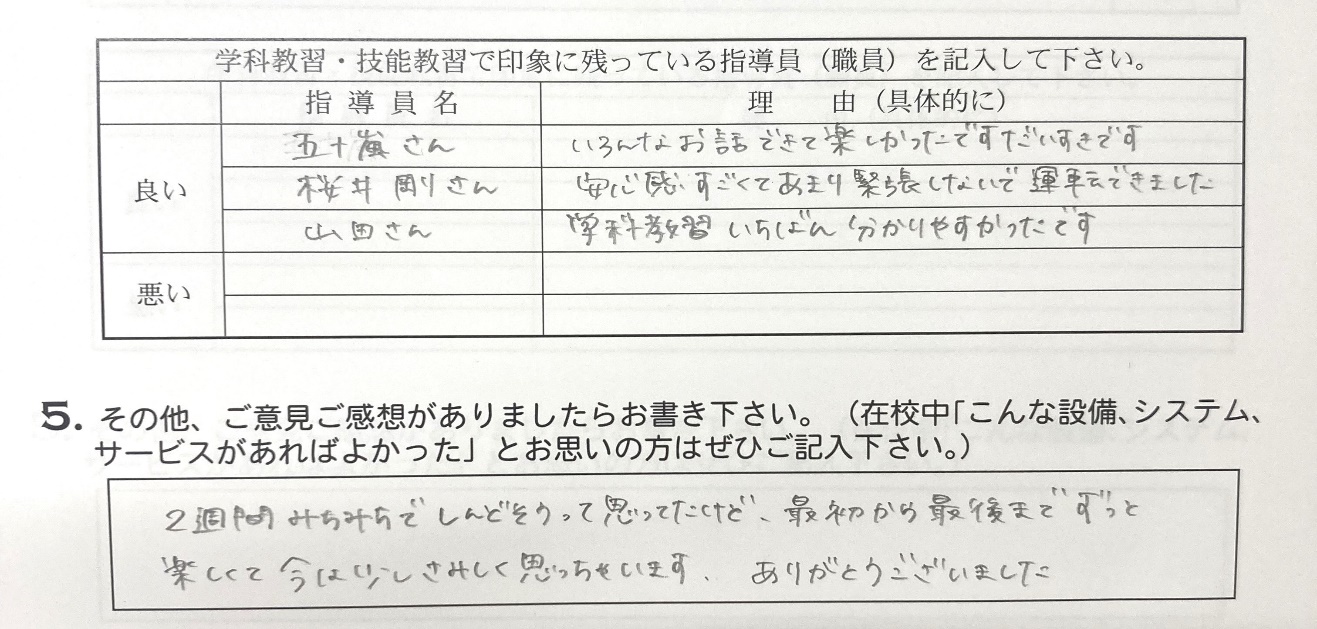 学科教習・技能教習で印象に残っている指導員（職員）を記入して下さい。
指導員名 理由（具体的に）
良い
五十嵐さん いろんなお話できて楽しかったですだいすきです
桜井剛さん 安心感すごくてあまり緊張しないで運転できました
山田さん 学科教習いちばん分かりやすかったです
悪い
5. その他、ご意見ご感想がありましたらお書き下さい。（在校中「こんな設備、システム、
サービスがあればよかった」とお思いの方はぜひご記入下さい。）
2週間みちみちでしんどそうって思ってたけど、最初から最後までずっと
楽しくて今は少しさみしく思っちゃいます、ありがとうございました